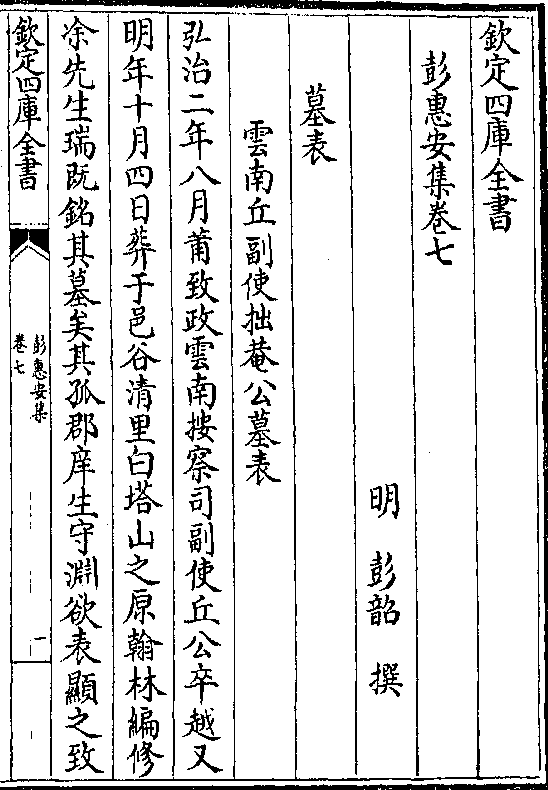 欽定四庫全書
彭惠安集卷七
明 彭韶 撰
墓表
雲南丘副使拙菴公墓表
弘治二年八月莆致政雲南按察司副使丘公卒越又
明年十月四日葬于邑谷清里白塔山之原翰林編修
凃先生瑞既銘其墓矣其孤郡庠生守淵欲表顯之致
欽定四庫全書
彭惠安集
卷七
一